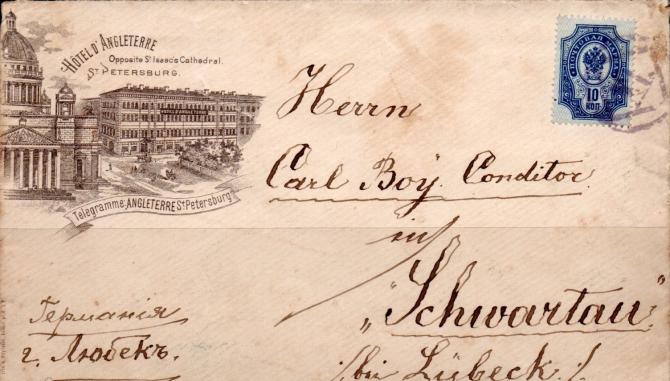 HÔTEL D'ANGLETERRE
Opposite St Isaac's Cathedral.
St PETERSBURG.
Telegramme: ANGLETERRE St Petersburg
ПОЧТОВАЯ МАРКА
10
КОП.
Herrn
Carl Boÿ. Conditor.
in
"Schwartau"
/bei Lübeck./
Германія
г. Любекъ.